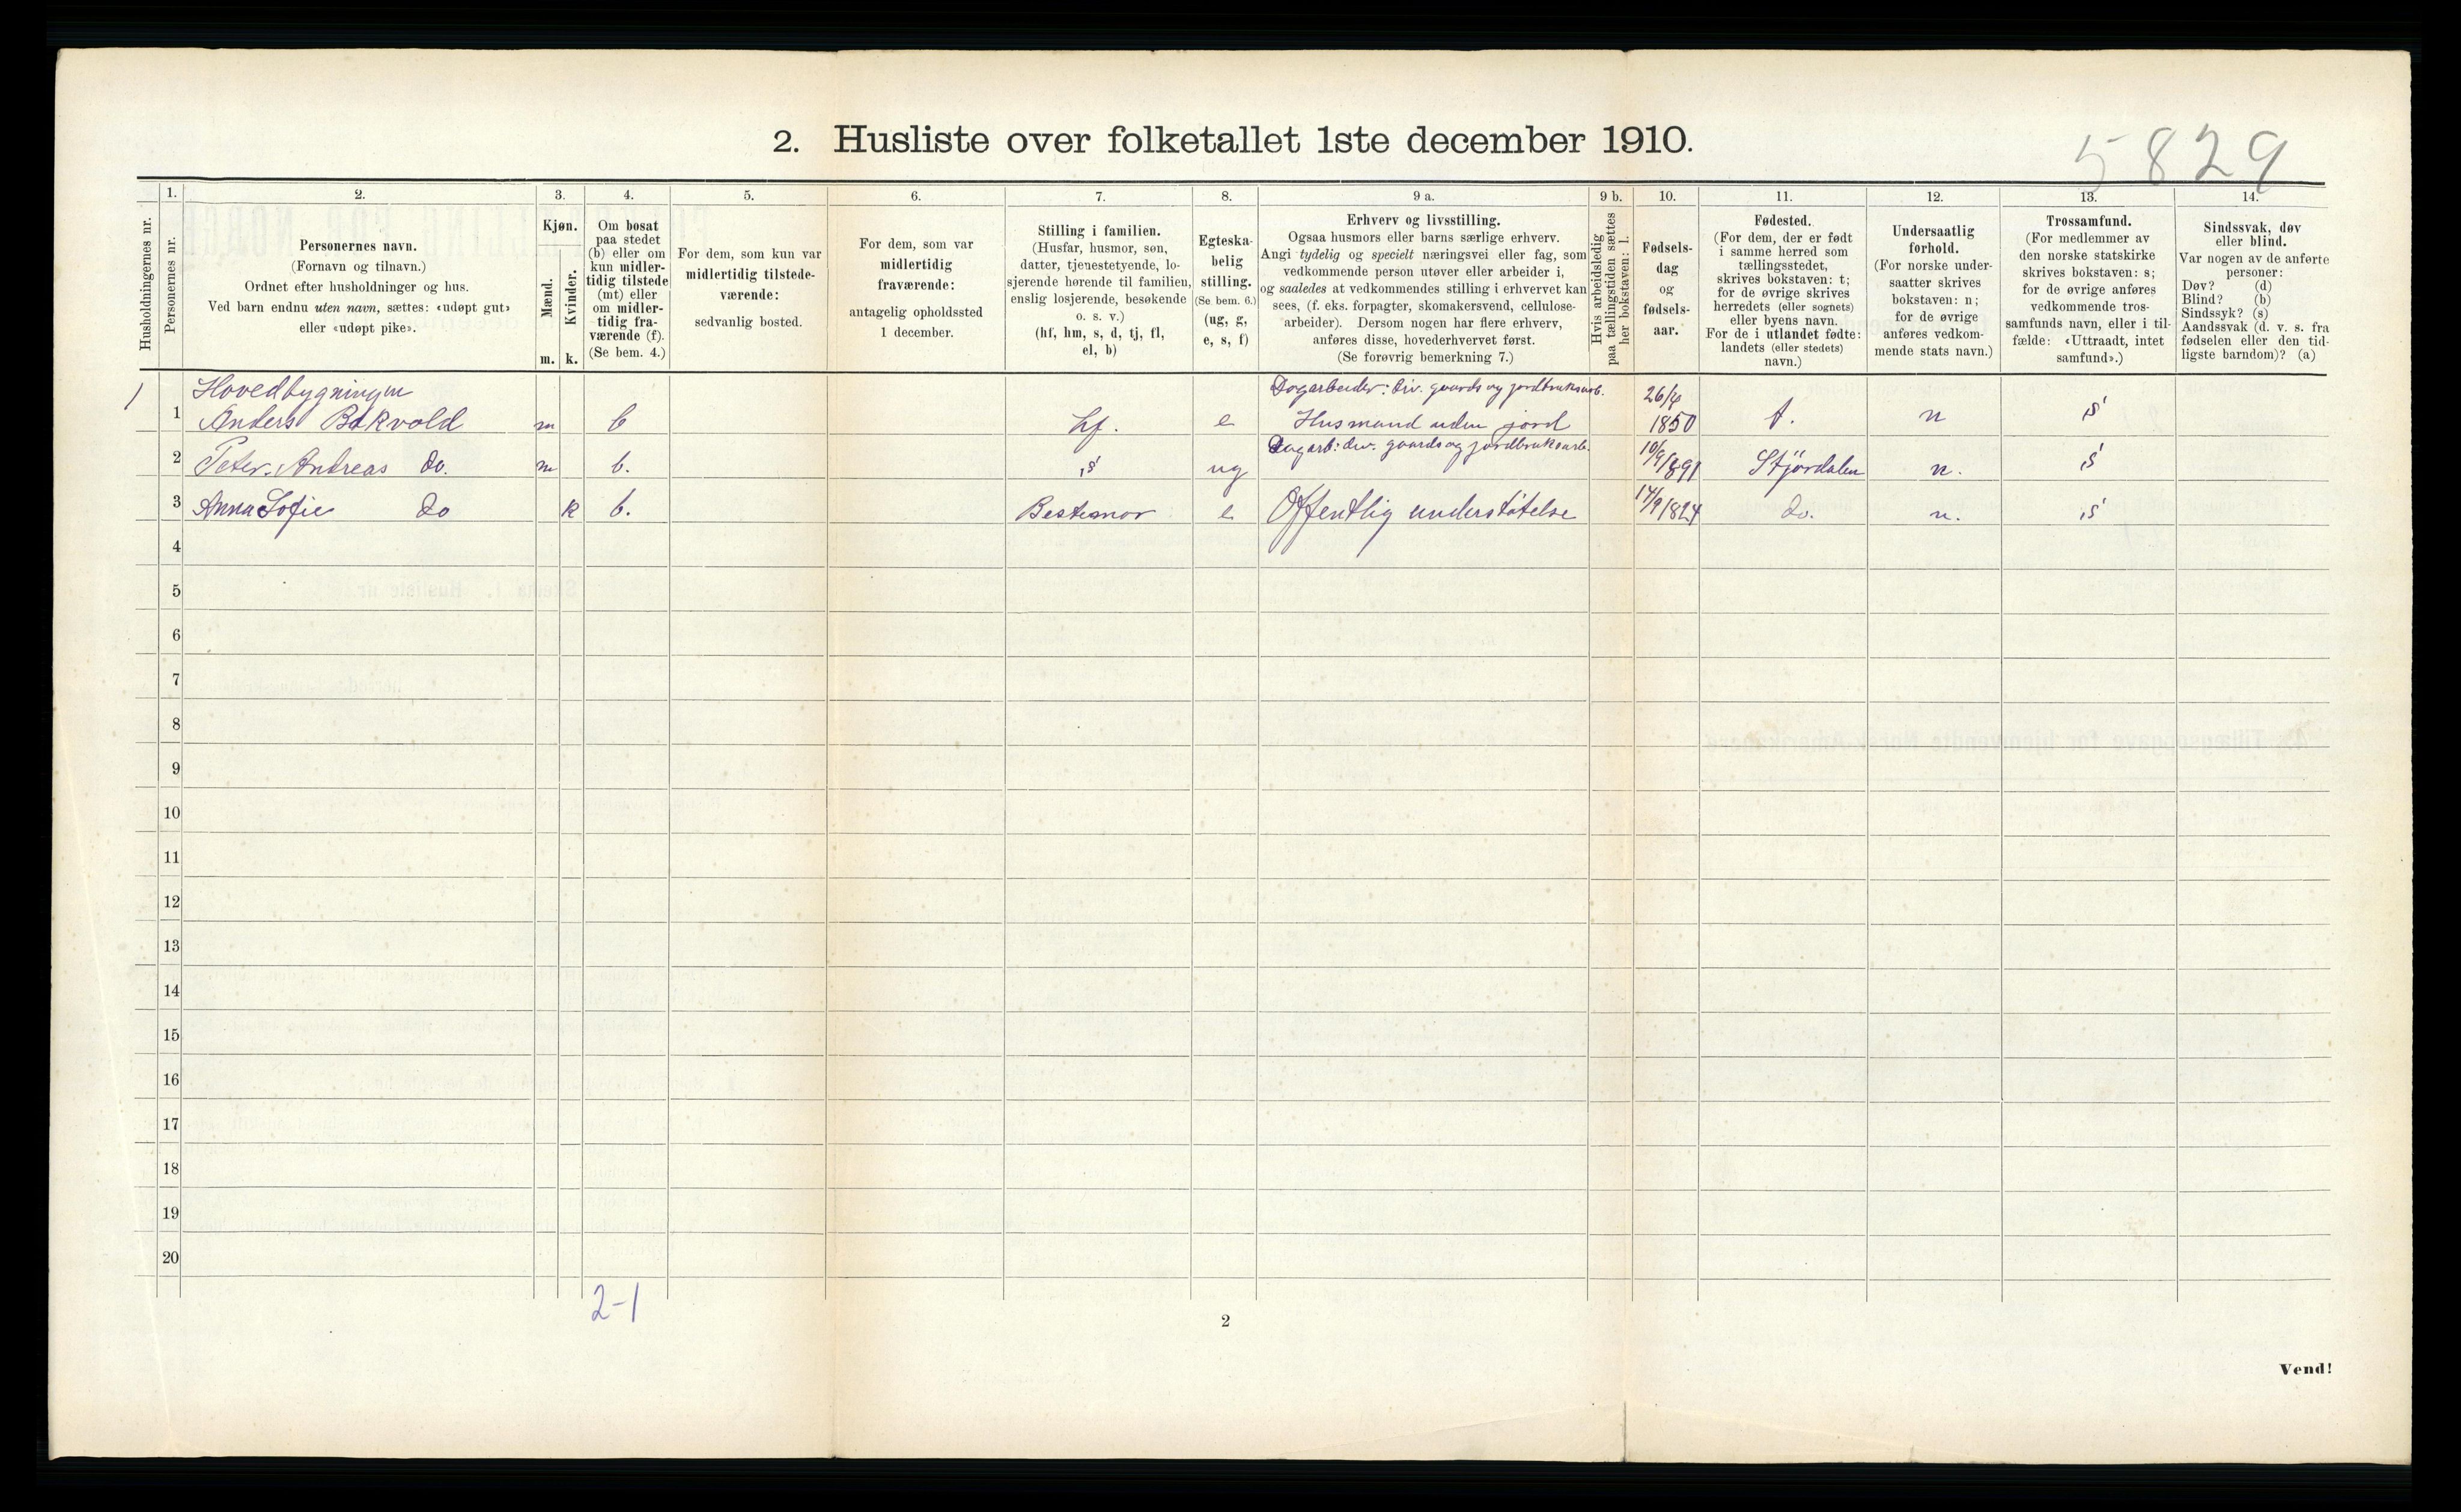 2. Husliste over folketallet 1ste december 1910.
5829
Husholdningernes nr.
1.
Personernes nr.
2.
Personernes navn.
(Fornavn og tilnavn.)
Ordnet efter husholdninger og hus.
Ved barn endnu uten navn, sættes: «udøpt gut»
eller «udøpt pike».
3.
Kjøn.
Mænd.
Kvinder.
m. k.
4.
Om bosat
paa stedet
(b) eller om
kun midler-
tidig tilstede
(mt) eller
om midler-
tidig fra-
værende (f).
(Se bem. 4.)
5.
For dem, som kun var
midlertidig tilstede-
værende:
sedvanlig bosted.
6.
For dem, som var
midlertidig
fraværende:
antagelig opholdssted
1 december.
7.
Stilling i familien.
(Husfar, husmor, søn,
datter, tjenestetyende, lo-
sjerende hørende til familien,
enslig losjerende, besøkende
o. s. v.)
(hf, hm, s, d, tj, fl,
el, b)
8.
Egteska-
belig
stilling.
(Se bem. 6.)
(ug, g,
e, s, f)
9 a.
Erhverv og livsstilling.
Ogsaa husmors eller barns særlige erhverv.
Angi tydelig og specielt næringsvei eller fag, som
vedkommende person utøver eller arbeider i,
og saaledes at vedkommendes stilling i erhvervet kan
sees, (f. eks. forpagter, skomakersvend, cellulose-
arbeider). Dersom nogen har flere erhverv,
anføres disse, hovederhvervet først.
(Se forøvrig bemerkning 7.)
9 b.
Hvis arbeidsledig
paa tællingstiden sættes
her bokstaven: l.
10.
Fødsels-
dag
og
fødsels-
aar.
11.
Fødested.
(For dem, der er født
i samme herred som
tællingsstedet,
skrives bokstaven: t;
for de øvrige skrives
herredets (eller sognets)
eller byens navn.
For de i utlandet fødte:
landets (eller stedets)
navn.)
12.
Undersaatlig
forhold.
(For norske under-
saatter skrives
bokstaven: n;
for de øvrige
anføres vedkom-
mende stats navn.)
13.
Trossamfund.
(For medlemmer av
den norske statskirke
skrives bokstaven: s;
for de øvrige anføres
vedkommende tros-
samfunds navn, eller i til-
fælde: «Uttraadt, intet
samfund».)
14.
Sindssvak, døv
eller blind.
Var nogen av de anførte
personer:
Døv? (d)
Blind? (b)
Sindssyk? (s)
Aandssvak (d. v. s. fra
fødselen eller den tid-
ligste barndom)? (a)
Hovedbygningen Dagarbeider: div. gaards og jordbruksarb.
1 1 Anders Bakvold m b hf. e Husmand uden jord 26/4 1850 t. n s
Dagarb: div. gaards og jordbruksarb.
2 Peter Andreas do. m b. s ug 10/9 1891 Stjördalen n. s
3 Anna Sofie do k b. Bestemor e Offentlig understötelse 14/9 1824 do. n. s
4
5
6
7
8
9
10
11
12
13
14
15
16
17
18
19
20
2-1
2
Vend!